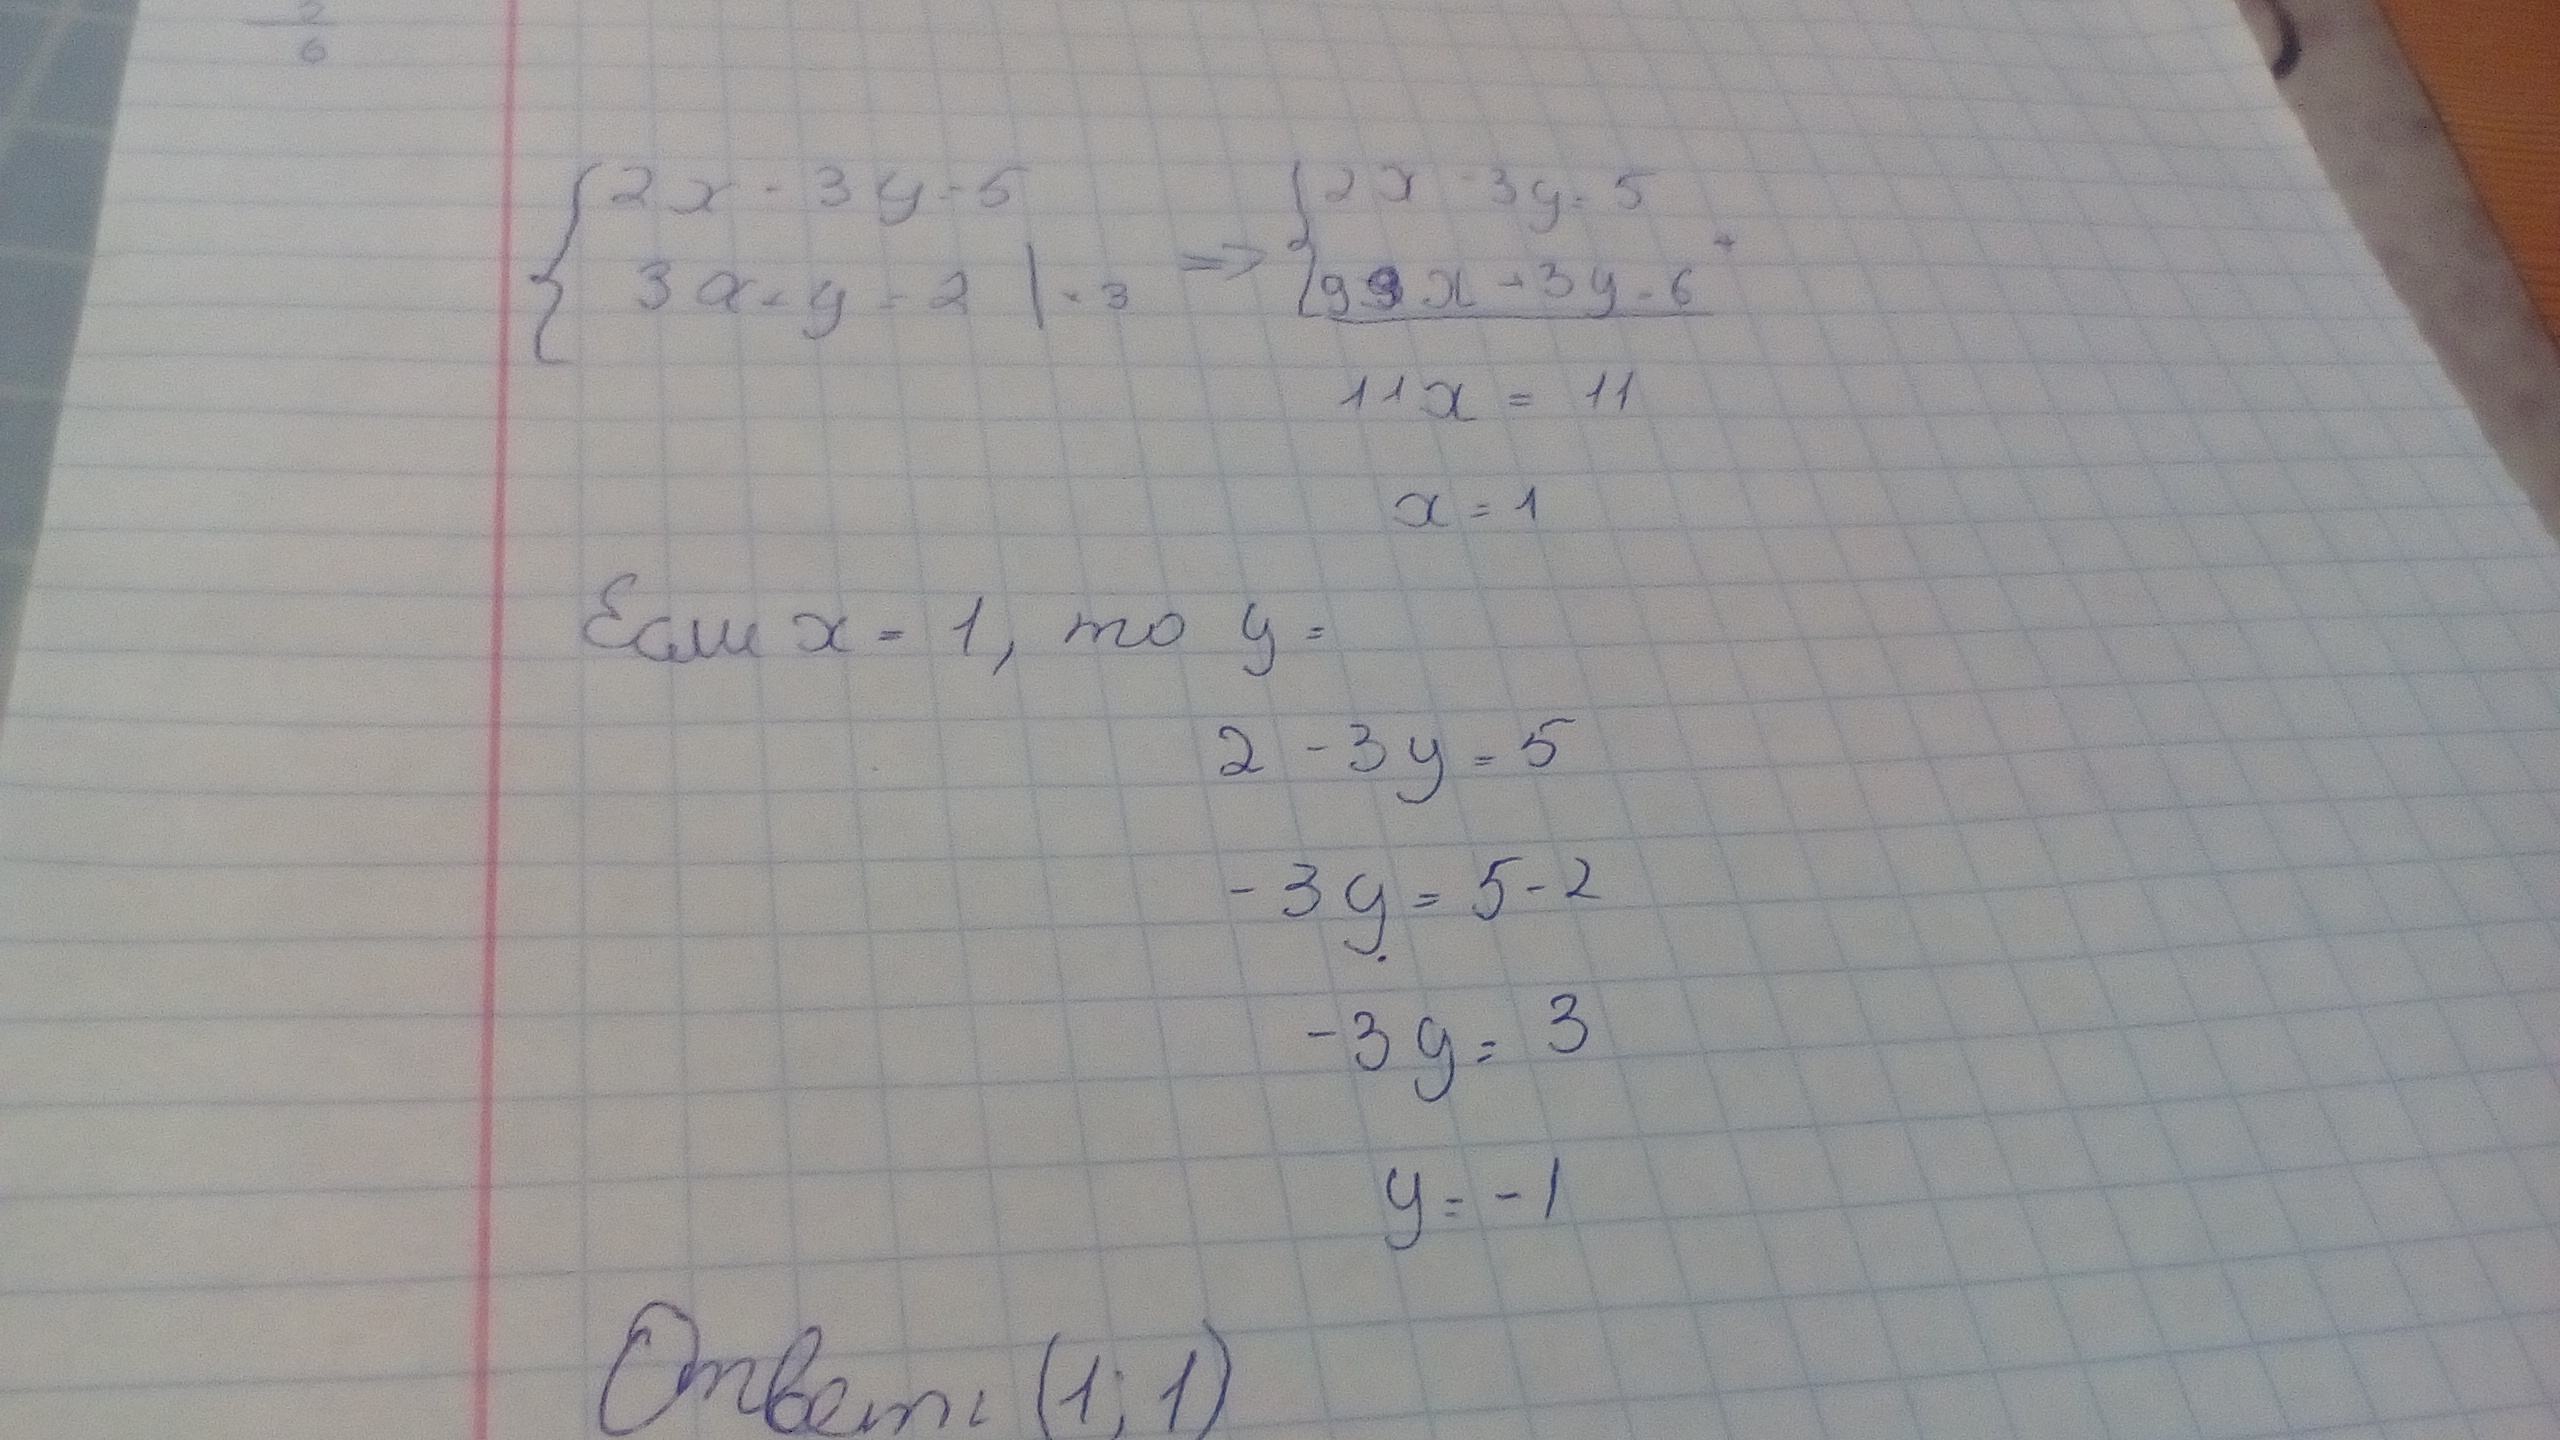 2
6
{2x - 3y = 5
3x + y = 2 | · 3 => {2x - 3y = 5
9x + 3y = 6 +
11x = 11
x = 1
Если x = 1, то y =
2 - 3y = 5
-3y = 5 - 2
-3y = 3
y = -1
Ответ: (1; 1)